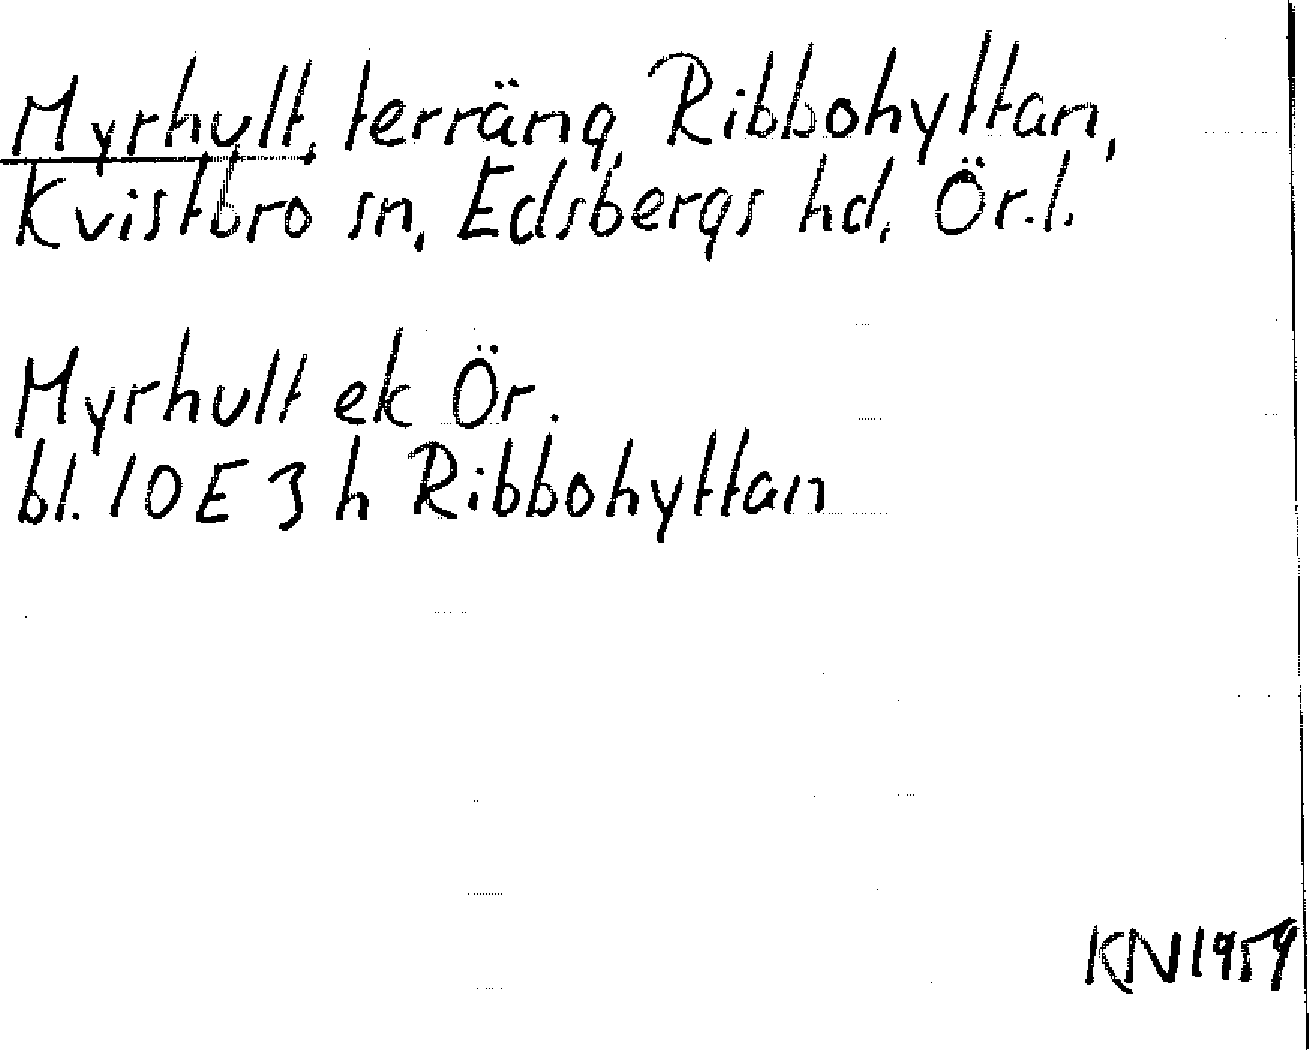 Myrhult, terräng, Ribbohyttan,
Kvistbro sn, Edsbergs hd, Ör.l.
Myrhult ek Ör.
bl. 10E 3 h Ribbohyttan
KN 1959